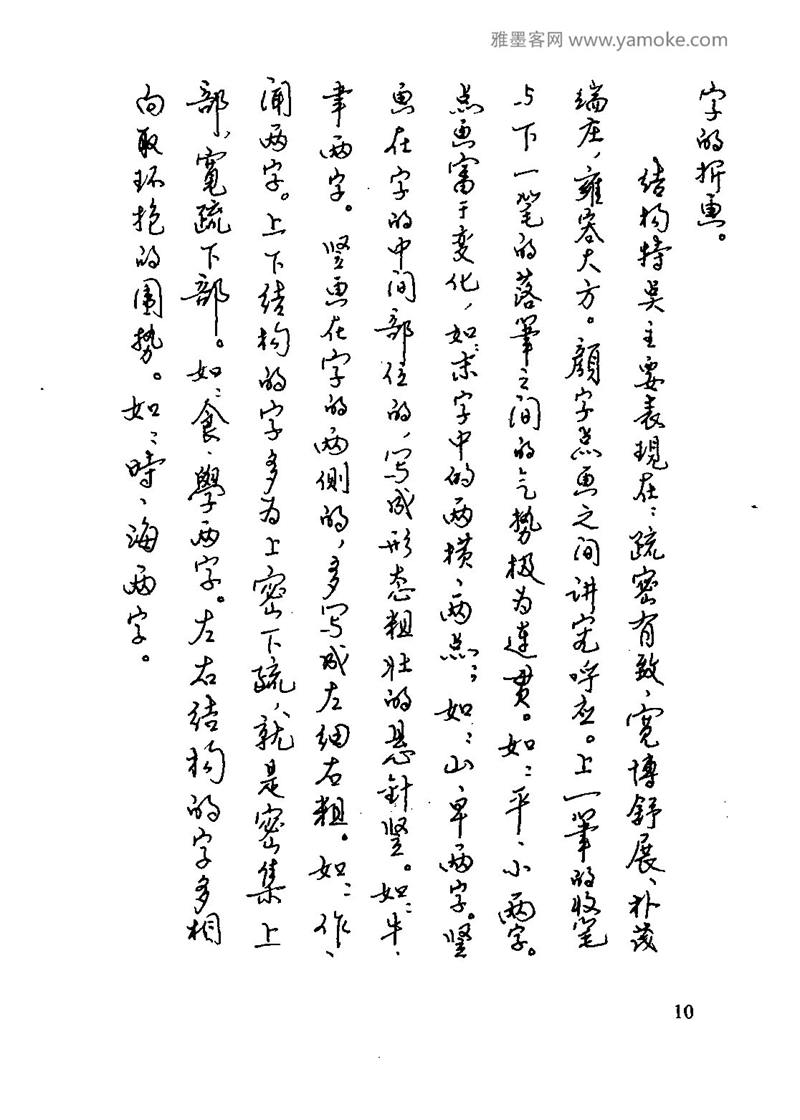 雅墨客网 www.yamoke.com
字的折画。
结构特点主要表現在：疏密有致、寬博舒展、朴茂
端庄，雍容大方。顔字点画之间讲究呼应。上一筆的收笔
与下一笔的落筆之间的气势极为連貫。如：平、小两字。
点画富于变化，如：字中的两横、两点；如：山、早两字。竖
画在字的中间部位的，写成形态粗壮的悬針竖。如：牛、
聿两字。竖画在字的两側的，多写成左细右粗。如：作、
闻两字。上下结构的字多为上密下疏，就是密集上
部，寬疏下部。如：食、學两字。左右结构的字多相
向取环抱的圍势。如：時、海两字。
10